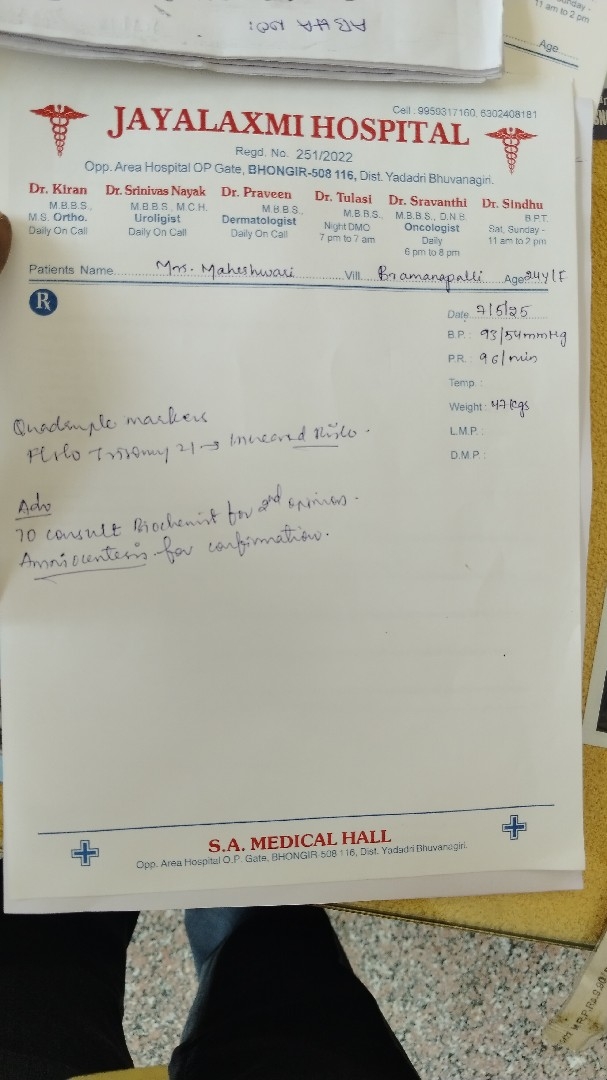 ABHA NO:
11 am to 2 pm
Age
Cell : 9959317160, 6302408181
JAYALAXMI HOSPITAL
Regd. No. 251/2022
Opp. Area Hospital OP Gate, BHONGIR-508 116, Dist. Yadadri Bhuvanagiri.
Dr. Kiran Dr. Srinivas Nayak Dr. Praveen Dr. Tulasi Dr. Sravanthi Dr. Sindhu
M.B.B.S., M.B.B.S., M.C.H. M.B.B.S., M.B.B.S., M.B.B.S., D.N.B B.P.T.
M.S. Ortho. Urologist Dermatologist Night DMO Oncologist Sat, Sunday -
Daily On Call Daily On Call Daily On Call 7 pm to 7 am Daily 11 am to 2 pm
6 pm to 8 pm
Patients Name Mrs. Maheshwari Vill. Bramanapalli Age 24Y/F
Rx
Date 7/5/25
B.P. : 93/54mmHg
P.R. : 96/min
Temp. :
Weight : 47kgs
L.M.P. :
D.M.P. :
Quadruple markers
Trisomy 21 → Increased Risk.
Adv
To consult Biochemist for 2nd opinion.
Amniocentesis for confirmation.
S.A. MEDICAL HALL
Opp. Area Hospital O.P. Gate, BHONGIR-508 116, Dist. Yadadri Bhuvanagiri.